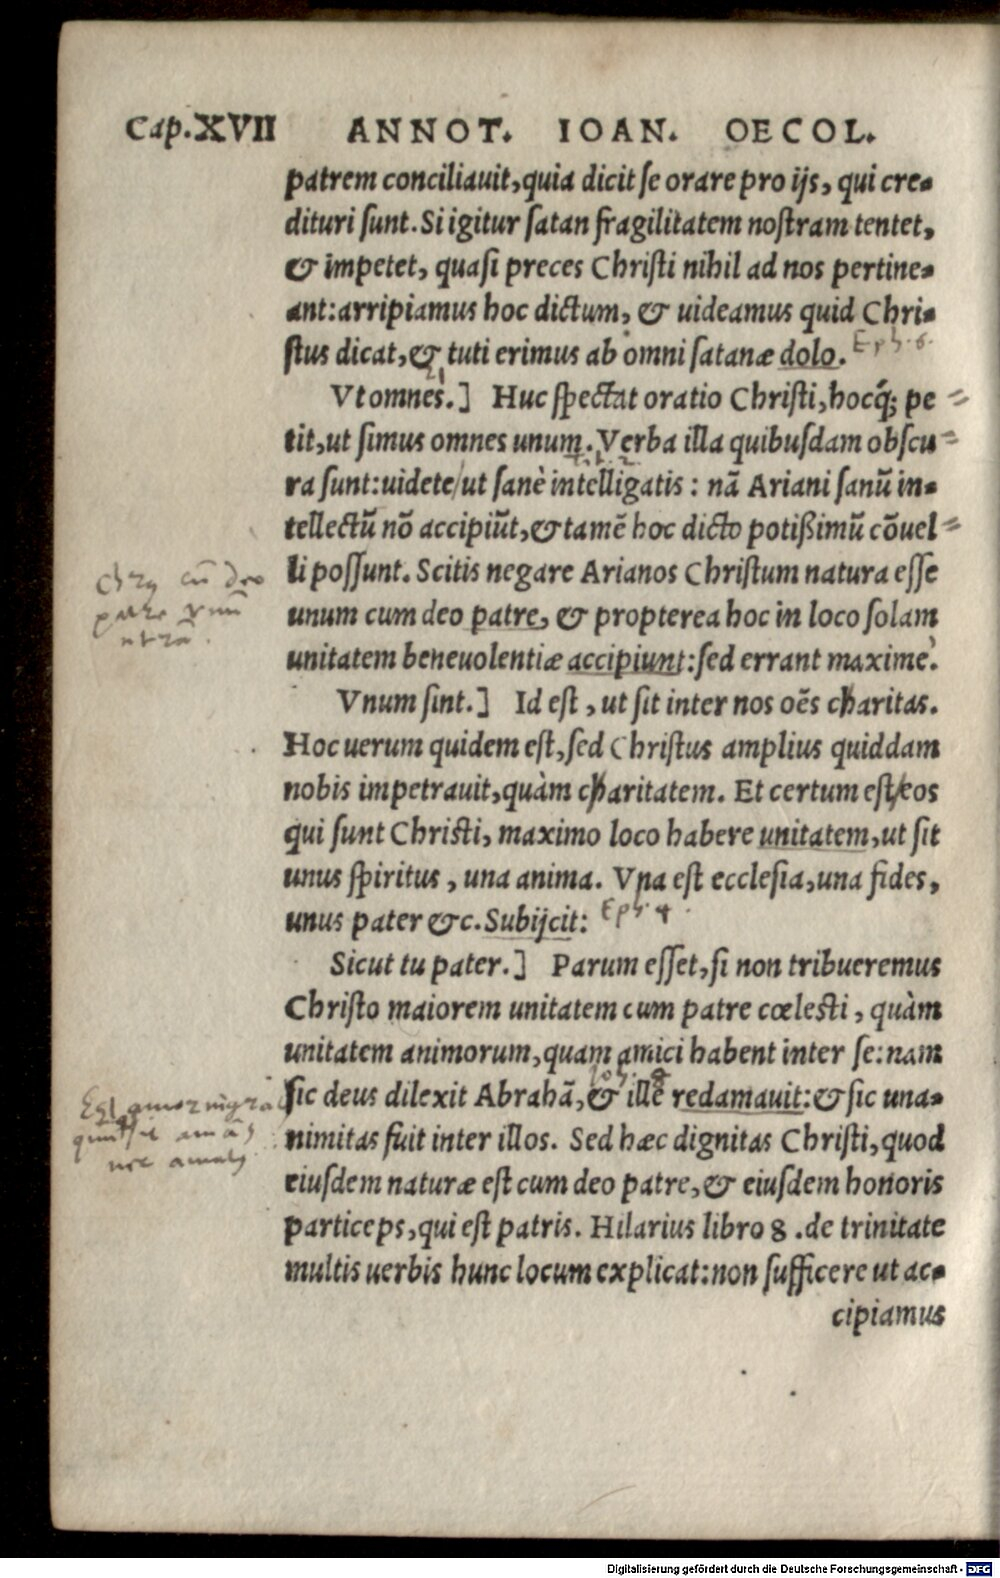 Cap.XVII ANNOT. IOAN. OECOL.
patrem conciliauit,quia dicit ſe orare pro ijs, qui cre-
dituri ſunt. Si igitur ſatan fragilitatem noſtram tentet,
& impetet, quaſi preces Chriſti nihil ad nos pertine-
ant:arripiamus hoc dictum, & uideamus quid Chri-
ſtus dicat,& tuti erimus ab omni ſatanæ dolo. Eph. 6.
Vt omnes.] Huc ſpectat oratio Chriſti,hocq́; pe
tit,ut ſimus omnes unum. Verba illa quibuſdam obſcu
ra ſunt:uidete/ut ſanè intelligatis : nã Ariani ſanũ in-
tellectũ nõ accipiũt,& tamẽ hoc dicto potißimũ cõuel
li poſſunt. Scitis negare Arianos Chriſtum natura eſſe
unum cum deo patre, & propterea hoc in loco ſolam
unitatem beneuolentiæ accipiunt:ſed errant maximè.
Vnum ſint.] Id eſt, ut ſit inter nos oẽs charitas.
Hoc uerum quidem eſt,ſed Chriſtus amplius quiddam
nobis impetrauit,quàm charitatem. Et certum eſt/eos
qui ſunt Chriſti, maximo loco habere unitatem,ut ſit
unus ſpiritus, una anima. Vna eſt eccleſia,una fides,
unus pater &c. Subijcit: Eph. 4.
Sicut tu pater.] Parum eſſet,ſi non tribueremus
Chriſto maiorem unitatem cum patre cœleſti, quàm
unitatem animorum,quam amici habent inter ſe:nam
ſic deus dilexit Abrahã,& ille redamauit:& ſic una-
nimitas fuit inter illos. Sed hæc dignitas Chriſti,quod
eiuſdem naturæ eſt cum deo patre,& eiuſdem honoris
particeps,qui eſt patris. Hilarius libro 8. de trinitate
multis uerbis hunc locum explicat:non ſufficere ut ac-
cipiamus
Digitalisierung gefördert durch die Deutsche Forschungsgemeinschaft - DFG